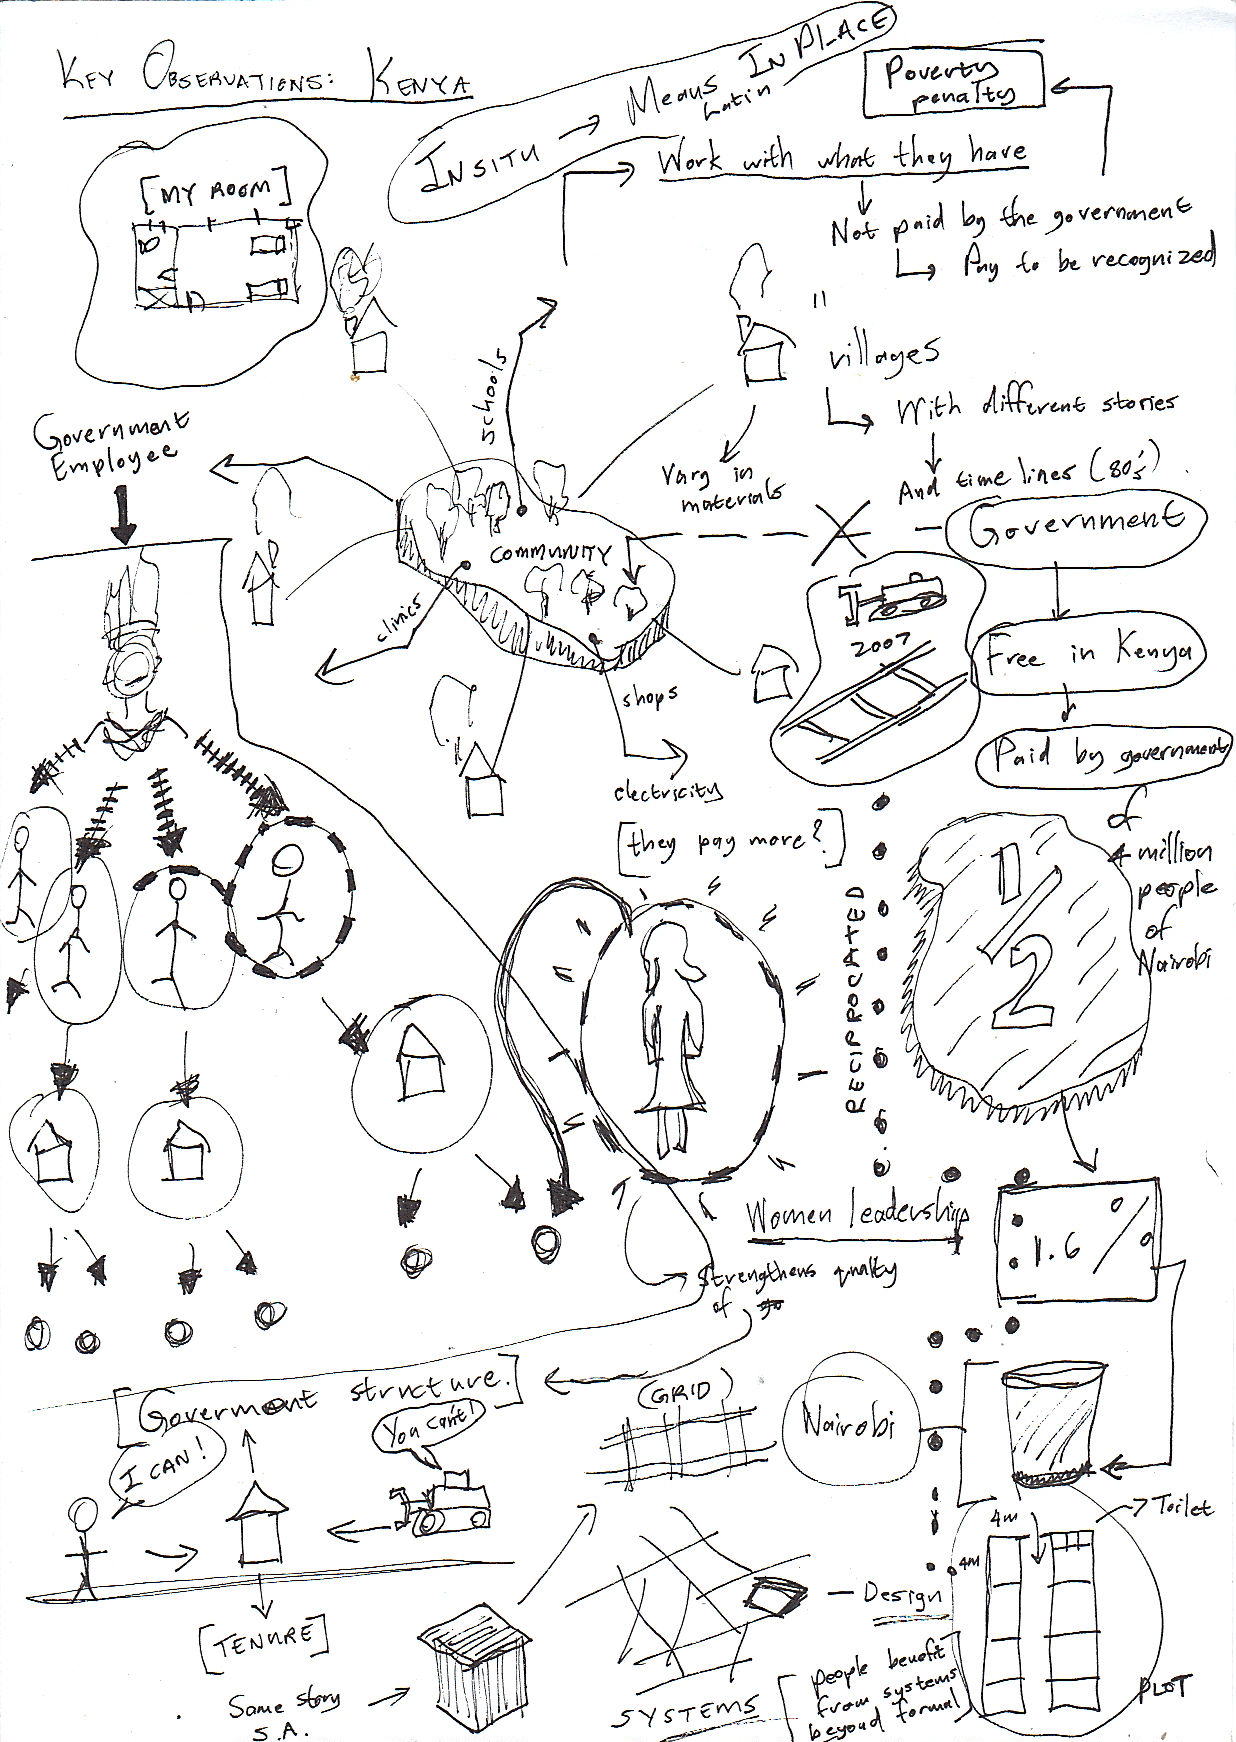 KEY OBSERVATIONS: KENYA
INSITU → Means IN PLACE
Latin
Poverty
penalty
Work with what they have
Not paid by the government
Pay to be recognized
[MY ROOM]
"
villages
With different stories
And time lines (80's)
Vary in
materials
Government
Employee
schools
COMMUNITY
clinics
shops
electricity
[they pay more?]
Government
Free in Kenya
Paid by government
2007
of
4 million
people
of
Nairobi
1/2
RECIPROCATED
Women leadership
1.6 %
Strengthens quality
of
[Goverment structure.]
I CAN!
You can't!
(GRID)
Nairobi
Toilet
4m
4m
Design
[TENURE]
Same story
S.A.
SYSTEMS
people benefit
from systems
beyond formal
PLOT